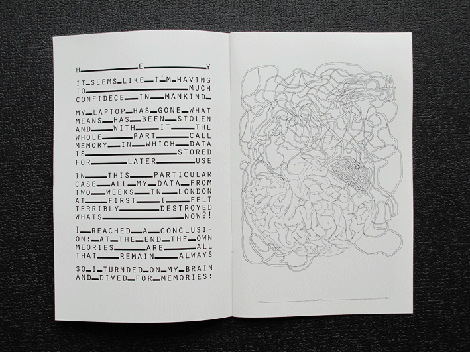 H E Y
IT SEEMS LIKE I'M HAVING
TO MUCH
CONFIDECE IN MANKIND.
MY LAPTOP HAS GONE WHAT
MEANS HAS BEEN STOLEN
AND WITH IT THE
WHOLE PART CALL
MEMORY IN WHICH DATA
IS STORED
FOR LATER USE
IN THIS PARTICULAR
CASE ALL MY DATA FROM
TWO WEEKS IN LONDON
AT FIRST I FELT
TERRIBLY DESTROYED
WHATS NOW?!
I REACHED A CONCLUSI-
ON: AT THE END THE OWN
MEORIES ARE ALL
THAT REMAIN ALWAYS
SO I TURNDED ON MY BRAIN
AND DIVED FOR MEMORIES!